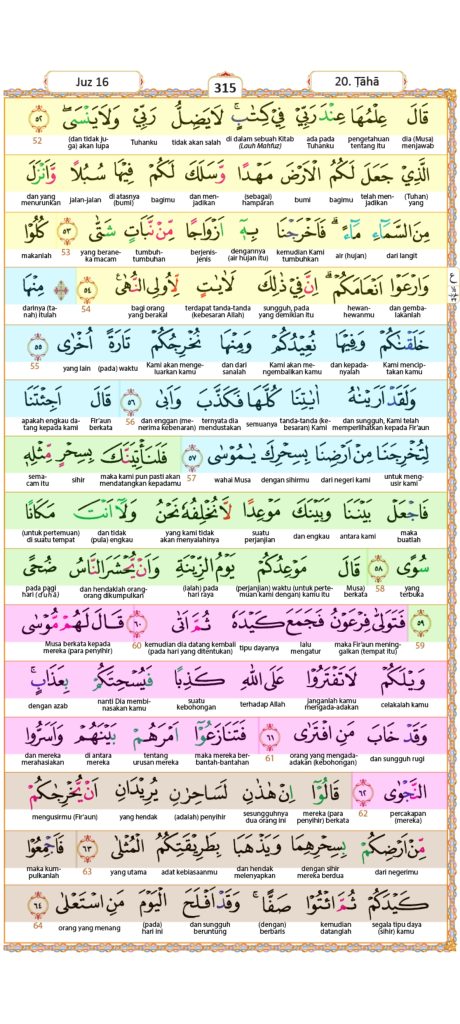 Juz 16
315
20. Ṭāhā
قَالَ عِلْمُهَا عِنْدَ رَبِّيْ فِيْ كِتٰبٍۚ لَا يَضِلُّ رَبِّيْ وَلَا يَنْسَىۖ ٥٢
dia (Musa) menjawab pengetahuan tentang itu ada pada Tuhanku di dalam sebuah Kitab (Lauh Mahfuz) tidak akan salah Tuhanku (dan tidak juga) akan lupa 52
الَّذِيْ جَعَلَ لَكُمُ الْاَرْضَ مَهْدًا وَّسَلَكَ لَكُمْ فِيْهَا سُبُلًا وَّاَنْزَلَ
(Tuhan) yang telah menjadikan bagimu bumi (sebagai) hamparan dan menjadikan bagimu di atasnya (bumi) jalan-jalan dan yang menurunkan
مِنَ السَّمَاۤءِ مَاۤءًۗ فَاَخْرَجْنَا بِهٖٓ اَزْوَاجًا مِّنْ نَّبَاتٍ شَتّٰى ٥٣ كُلُوْا
dari langit air (hujan) kemudian Kami tumbuhkan dengannya (air hujan itu) berjenis-jenis tumbuh-tumbuhan yang beraneka macam 53 makanlah
وَارْعَوْا اَنْعَامَكُمْ ۗ اِنَّ فِيْ ذٰلِكَ لَاٰيٰتٍ لِّاُولِى النُّهٰى ٥٤ مِنْهَا
dan gembalakanlah hewan-hewanmu sungguh, pada yang demikian itu terdapat tanda-tanda (kebesaran Allah) bagi orang yang berakal 54 darinya (tanah) itulah
خَلَقْنٰكُمْ وَفِيْهَا نُعِيْدُكُمْ وَمِنْهَا نُخْرِجُكُمْ تَارَةً اُخْرٰى ٥٥
Kami menciptakan kamu dan kepadanyalah Kami akan mengembalikan kamu dan dari sanalah Kami akan mengeluarkan kamu (pada) waktu yang lain 55
وَلَقَدْ اَرَيْنٰهُ اٰيٰتِنَا كُلَّهَا فَكَذَّبَ وَاَبٰى ٥٦ قَالَ اَجِئْتَنَا
dan sungguh, Kami telah memperlihatkan kepada Fir'aun tanda-tanda (kebesaran) Kami semuanya ternyata dia mendustakan dan enggan (menerima kebenaran) 56 Fir'aun berkata apakah engkau datang kepada kami
لِتُخْرِجَنَا مِنْ اَرْضِنَا بِسِحْرِكَ يٰمُوْسٰى ٥٧ فَلَنَأْتِيَنَّكَ بِسِحْرٍ مِّثْلِهٖ
untuk mengusir kami dari negeri kami dengan sihirmu wahai Musa 57 maka kami pun pasti akan mendatangkan kepadamu sihir semacam itu
فَاجْعَلْ بَيْنَنَا وَبَيْنَكَ مَوْعِدًا لَّا نُخْلِفُهٗ نَحْنُ وَلَآ اَنْتَ مَكَانًا
maka buatlah antara kami dan engkau suatu perjanjian yang kami tidak akan menyalahinya dan tidak (pula) engkau (untuk pertemuan) di suatu tempat
سُوًى ٥٨ قَالَ مَوْعِدُكُمْ يَوْمُ الزِّيْنَةِ وَاَنْ يُّحْشَرَ النَّاسُ ضُحًى
yang terbuka 58 (Musa) berkata (perjanjian) waktu (untuk pertemuan kami dengan) kamu itu (ialah) pada hari raya dan hendaklah orang-orang dikumpulkan pada pagi hari (ḍuḥā)
٥٩ فَتَوَلّٰى فِرْعَوْنُ فَجَمَعَ كَيْدَهٗ ثُمَّ اَتٰى ٦٠ قَالَ لَهُمْ مُّوْسٰى
59 maka Fir'aun meninggalkan (tempat itu) lalu mengatur tipu dayanya kemudian dia datang kembali (pada hari yang ditentukan) 60 Musa berkata kepada mereka (para penyihir)
وَيْلَكُمْ لَا تَفْتَرُوْا عَلَى اللّٰهِ كَذِبًا فَيُسْحِتَكُمْ بِعَذَابٍۚ
celakalah kamu janganlah kamu mengada-adakan terhadap Allah suatu kebohongan nanti Dia membinasakan kamu dengan azab
وَقَدْ خَابَ مَنِ افْتَرٰى ٦١ فَتَنَازَعُوْٓا اَمْرَهُمْ بَيْنَهُمْ وَاَسَرُّوا
dan sungguh rugi orang yang mengada-adakan (kebohongan) 61 maka mereka berbantah-bantahan tentang urusan mereka di antara mereka dan mereka merahasiakan
النَّجْوٰى ٦٢ قَالُوْٓا اِنْ هٰذٰنِ لَسٰحِرٰنِ يُرِيْدٰنِ اَنْ يُّخْرِجٰكُمْ
percakapan (mereka) 62 mereka (para penyihir) berkata sesungguhnya dua orang ini (adalah) penyihir yang hendak mengusirmu (Fir'aun)
مِّنْ اَرْضِكُمْ بِسِحْرِهِمَا وَيَذْهَبَا بِطَرِيْقَتِكُمُ الْمُثْلٰى ٦٣ فَاَجْمِعُوْا
dari negerimu dengan sihir mereka berdua dan hendak melenyapkan adat kebiasaanmu yang utama 63 maka kumpulkanlah
كَيْدَكُمْ ثُمَّ ائْتُوْا صَفًّاۚ وَقَدْ اَفْلَحَ الْيَوْمَ مَنِ اسْتَعْلٰى ٦٤
segala tipu daya (sihir) kamu kemudian datanglah (dengan) berbaris dan sungguh beruntung (pada) hari ini orang yang menang 64